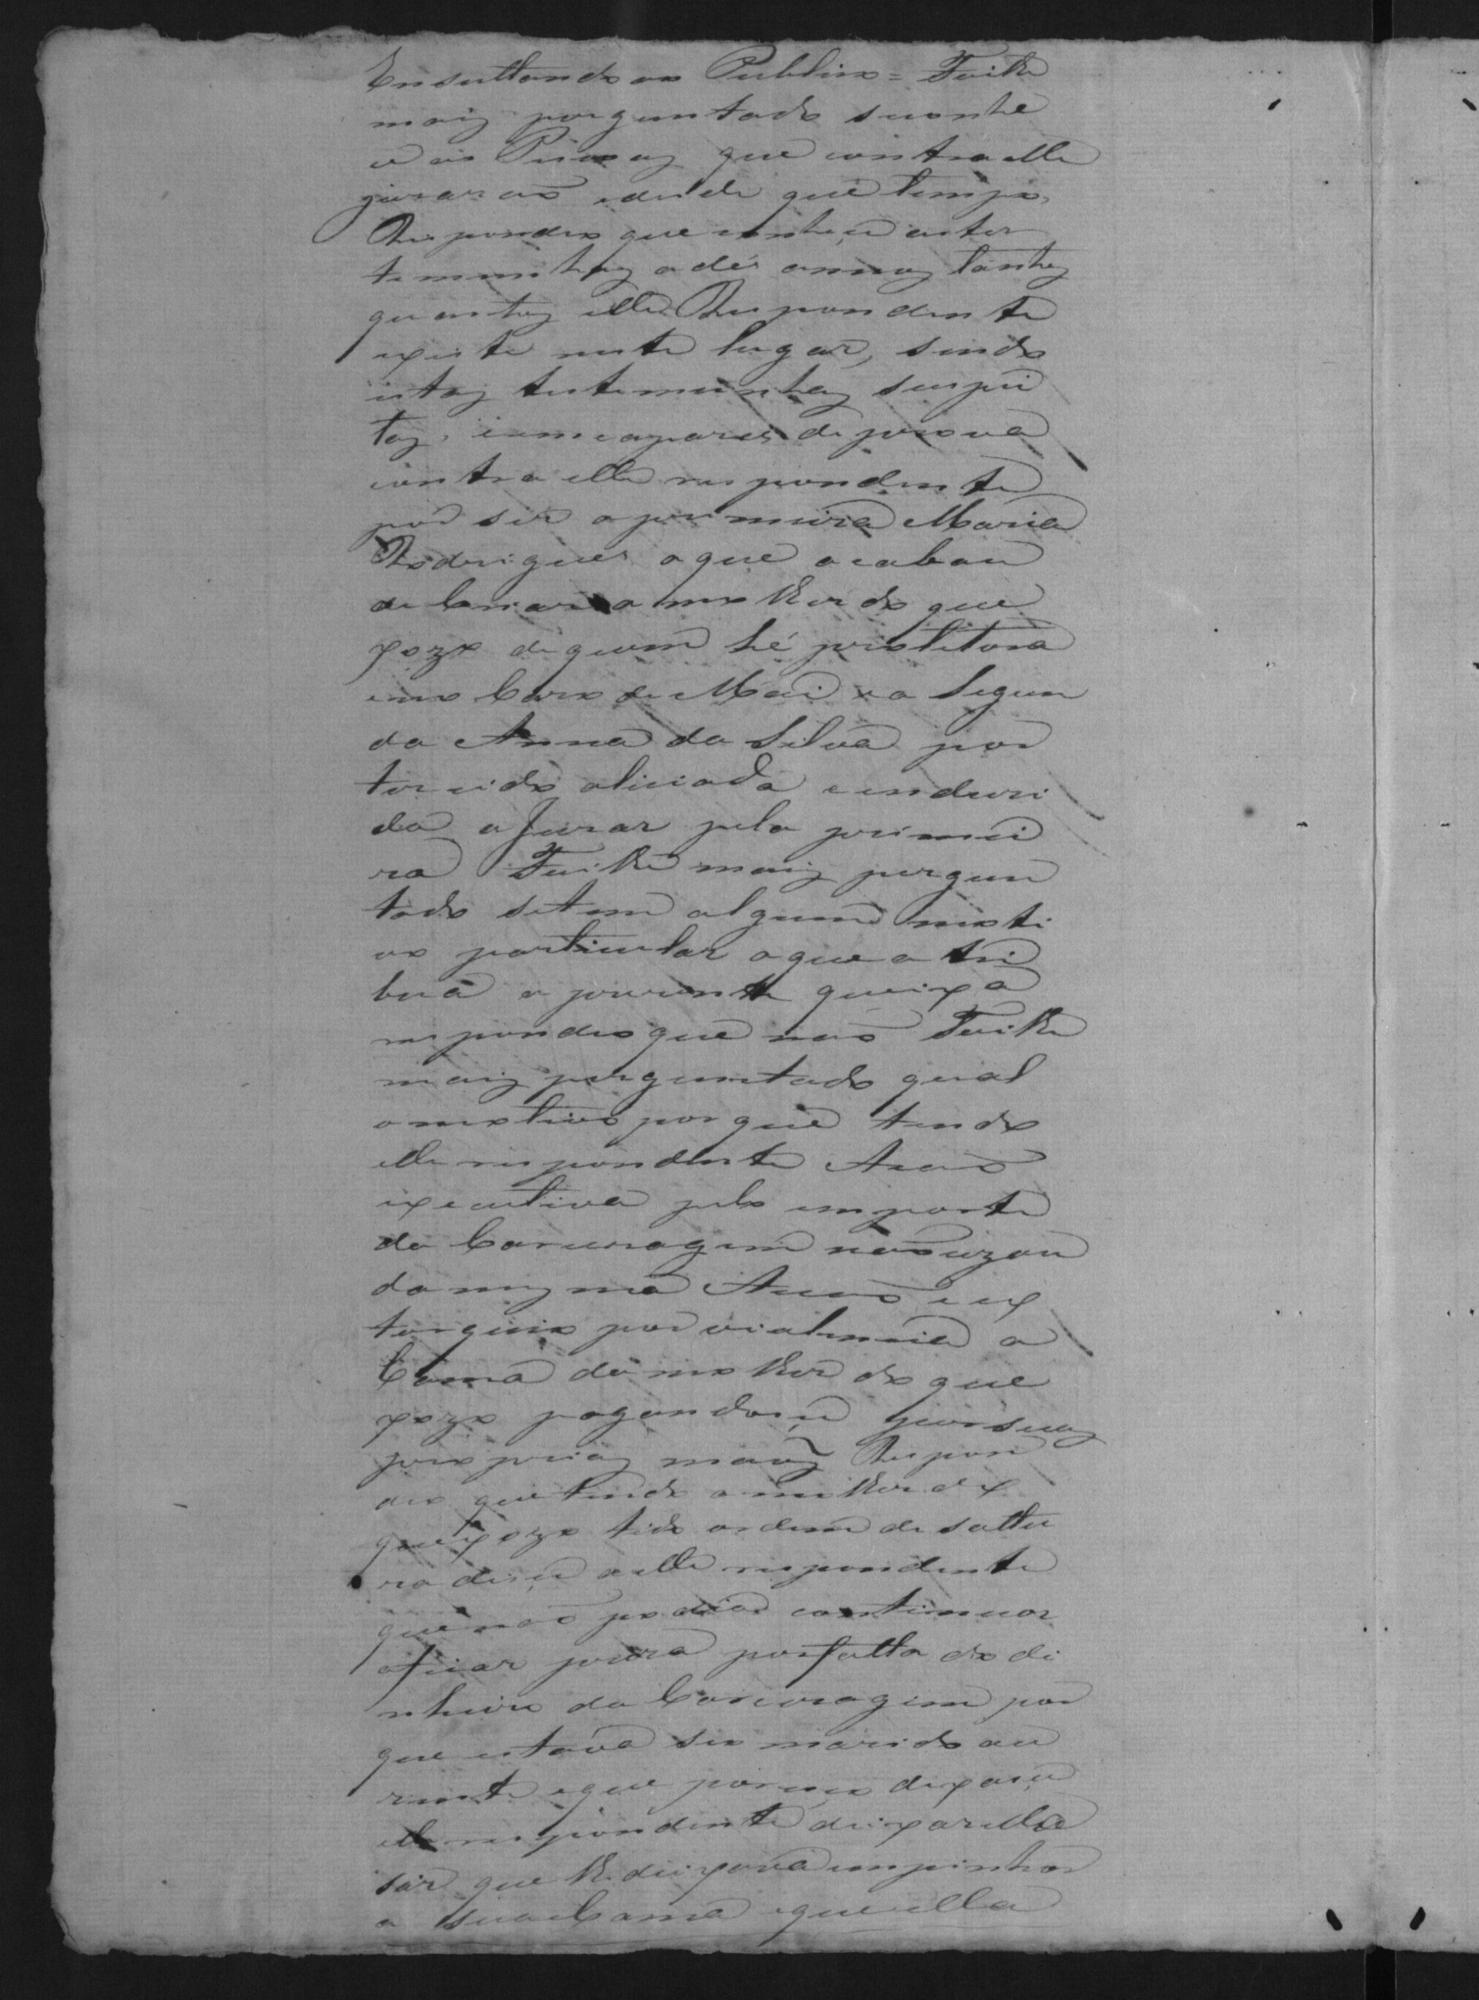 Ensultando ao Publico = Foi lhe
mais porguntado se conhe
ce as Pesoas que contra elle
jurarao e desde que tempo,
Respondeo que conheçe as tes
temunhas a des annos tantos
quantos elle Respondente
existe neste lugar, sendo
estas testemunhas suspei
tas, e emcapazes de prova
contra elle respondente
por ser a primeira Maria
Rodrigues a que acabou
de Criar a molher do que
xozo de quem hé protetora
e no Caro de Mai e a segun
da Anna da Silva por
ter cido aliciada e enduzi
da a Jurar pela primei
ra Foi lhe mais pergun
tado se tem algum moti
vo particular a que atri
bua a prezente queixa
respondeo que nao Foi lhe
mais perguntado qual
o motivo por que tendo
elle respondente Acao
executiva pelo emporte
da Carceragem nao uzou
da mesma Acao e ex
torquio por violencia a
Cama da molher do que
xozo pagandoçe por suas
proprias maos Respon
deo que tendo a molher do
quexozo tido ordem de soltu
ra diçe a elle respondente
que nao podia continuar
a ficar preza por falta do di
nheiro da Carceragem por
que estava seu marido au
zente e que por iço dixaçe
elle respondente deixar ella
sair que lhe deixava empenhor
a sua Cama e que ella